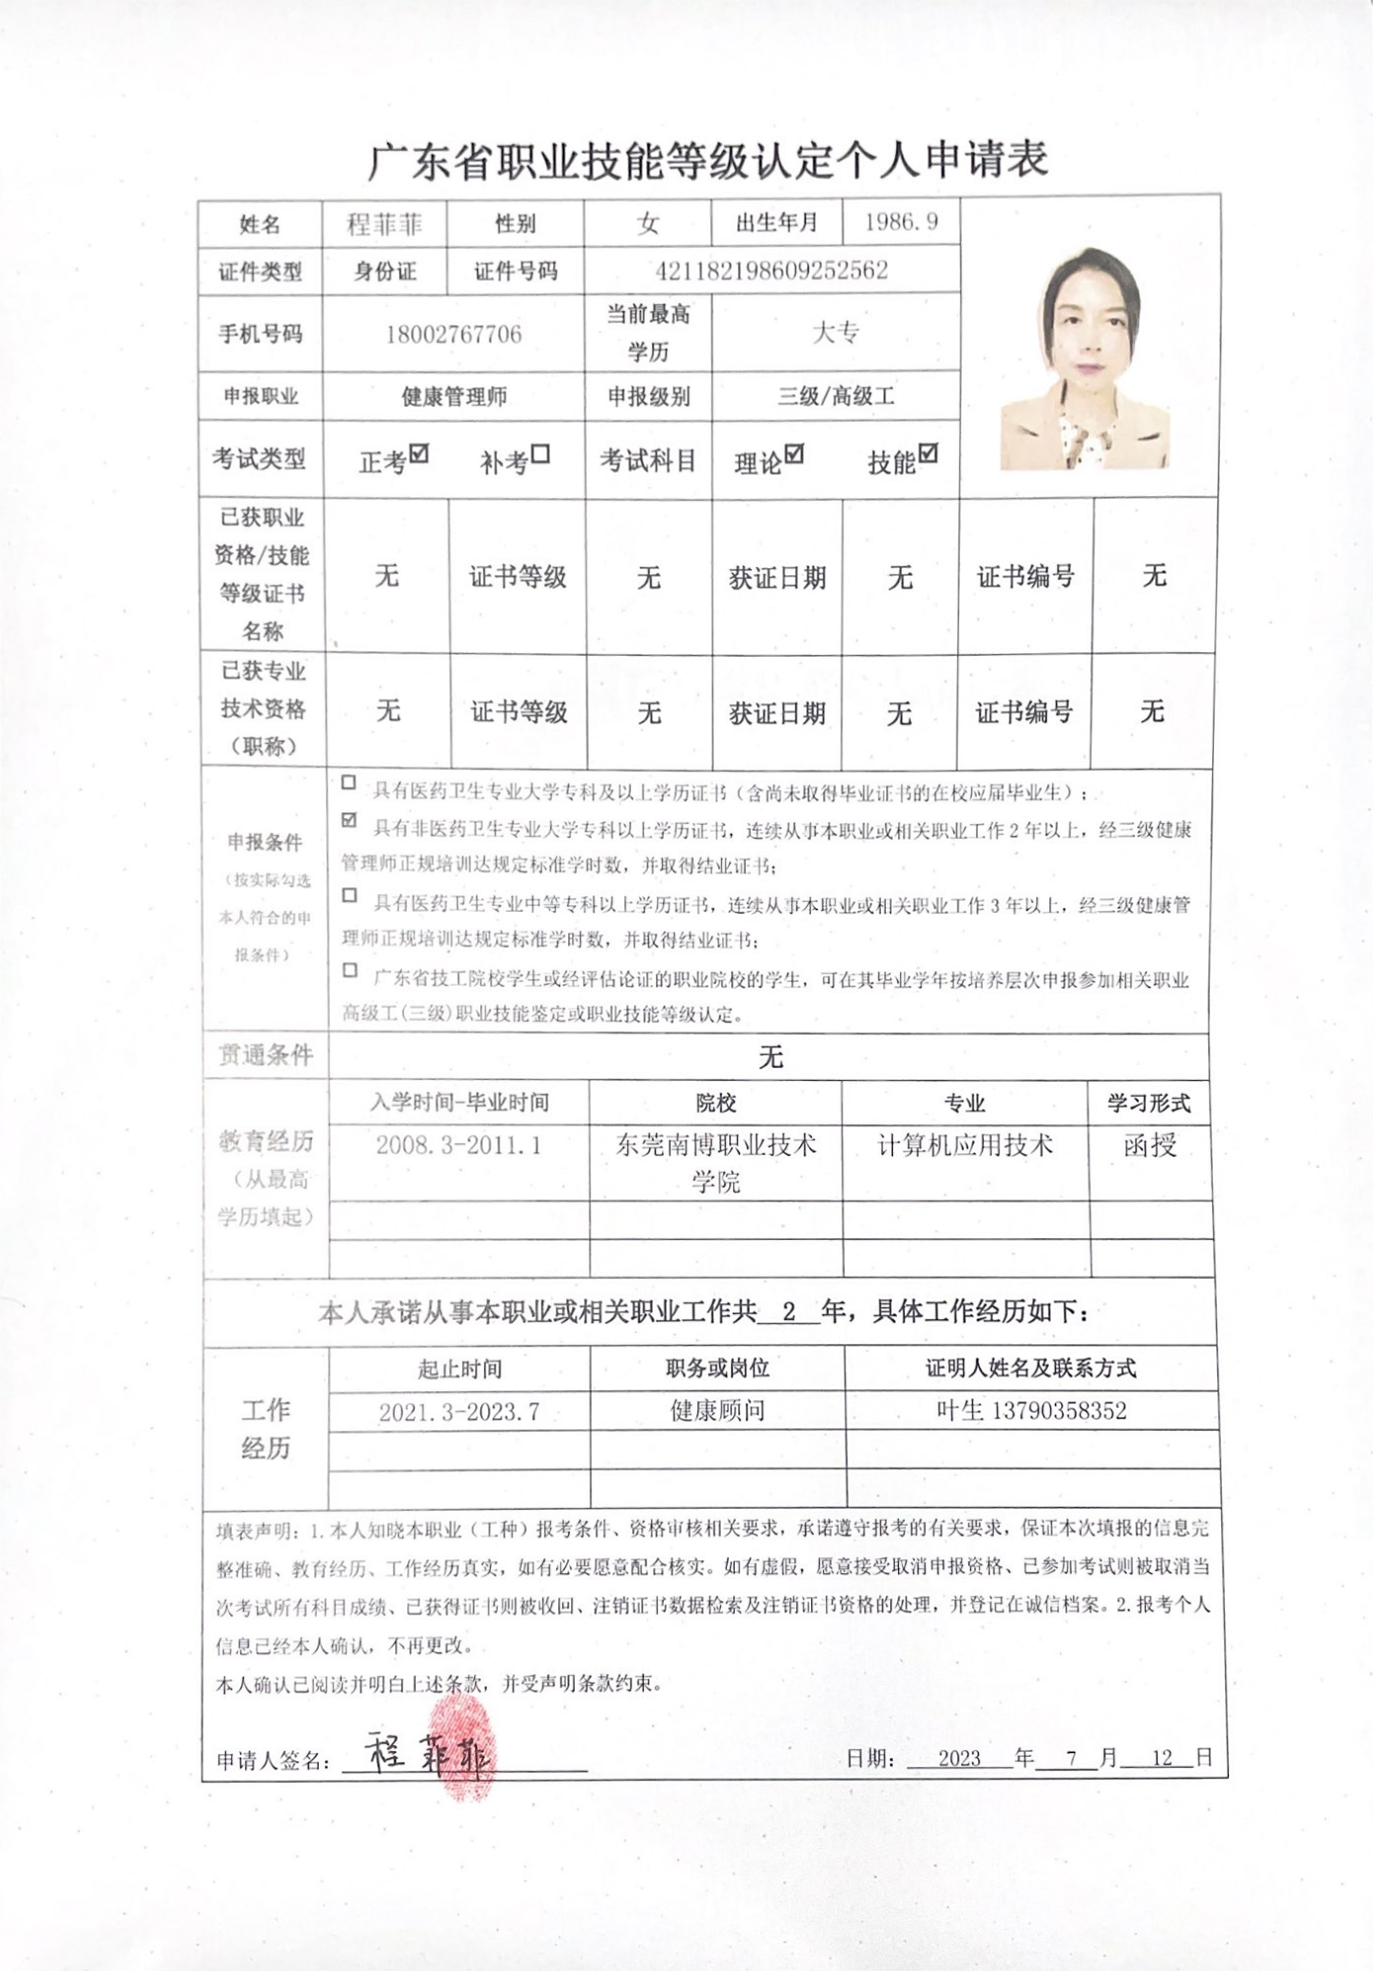 广东省职业技能等级认定个人申请表
姓名 程菲菲 性别 女 出生年月 1986.9
证件类型 身份证 证件号码 421182198609252562
手机号码 18002767706 当前最高学历 大专
申报职业 健康管理师 申报级别 三级/高级工
考试类型 正考☑ 补考☐ 考试科目 理论☑ 技能☑
已获职业
资格/技能
等级证书
名称 无 证书等级 无 获证日期 无 证书编号 无
已获专业
技术资格
（职称） 无 证书等级 无 获证日期 无 证书编号 无
申报条件
（按实际勾选
本人符合的申
报条件）
☐ 具有医药卫生专业大学专科及以上学历证书（含尚未取得毕业证书的在校应届毕业生）；
☑ 具有非医药卫生专业大学专科以上学历证书，连续从事本职业或相关职业工作2年以上，经三级健康
管理师正规培训达规定标准学时数，并取得结业证书；
☐ 具有医药卫生专业中等专科以上学历证书，连续从事本职业或相关职业工作3年以上，经三级健康管
理师正规培训达规定标准学时数，并取得结业证书；
☐ 广东省技工院校学生或经评估论证的职业院校的学生，可在其毕业学年按培养层次申报参加相关职业
高级工(三级)职业技能鉴定或职业技能等级认定。
贯通条件 无
教育经历
（从最高
学历填起）
入学时间-毕业时间 院校 专业 学习形式
2008.3-2011.1 东莞南博职业技术
学院 计算机应用技术 函授
本人承诺从事本职业或相关职业工作共 2 年，具体工作经历如下：
工作
经历
起止时间 职务或岗位 证明人姓名及联系方式
2021.3-2023.7 健康顾问 叶生 13790358352
填表声明：1.本人知晓本职业（工种）报考条件、资格审核相关要求，承诺遵守报考的有关要求，保证本次填报的信息完
整准确、教育经历、工作经历真实，如有必要愿意配合核实。如有虚假，愿意接受取消申报资格、已参加考试则被取消当
次考试所有科目成绩、已获得证书则被收回、注销证书数据检索及注销证书资格的处理，并登记在诚信档案。2.报考个人
信息已经本人确认，不再更改。
本人确认已阅读并明白上述条款，并受声明条款约束。
申请人签名：程菲菲 日期： 2023 年 7 月 12 日